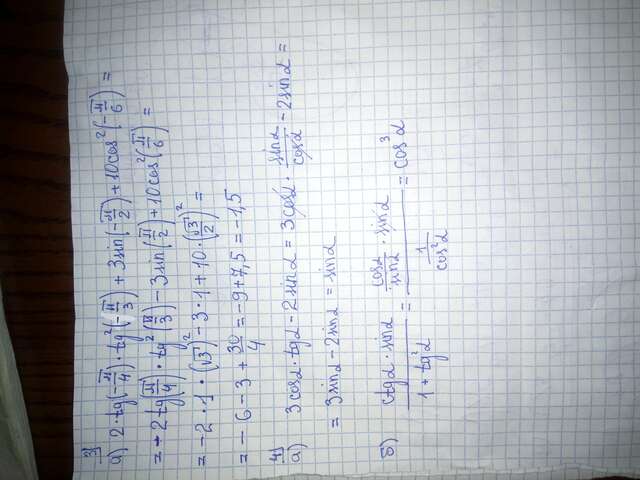 3)
а) 2·tg(-π/4)·tg²(-π/3) + 3sin(-π/2) + 10cos²(-π/6) =
= -2tg(π/4)·tg²(π/3) - 3sin(π/2) + 10cos²(π/6) =
= -2·1·(√3)² - 3·1 + 10·(√3/2)² =
= -6 - 3 + 30/4 = -9 + 7,5 = -1,5
4)
а) 3cosα·tgα - 2sinα = 3cosα·sinα/cosα - 2sinα =
= 3sinα - 2sinα = sinα
б) (ctgα·sinα)/(1 + tg²α) = (cosα/sinα·sinα)/(1/cos²α) = cos³α